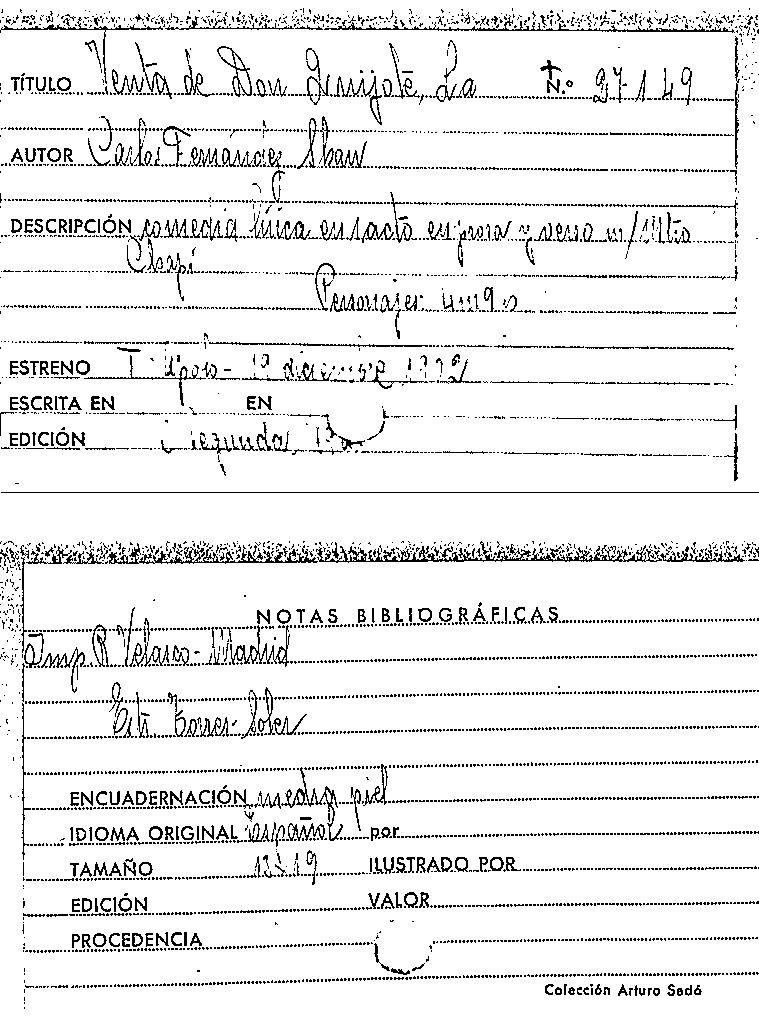 TÍTULO Venta de Don Quijote, La N.º
AUTOR Carlos Fernández Shaw
DESCRIPCIÓN comedia lírica en 1 acto en prosa y verso m/ Mtro
Chapí
Personajes
ESTRENO T. Apolo - 19 diciembre
ESCRITA EN EN
EDICIÓN Segunda
NOTAS BIBLIOGRÁFICAS
Imp. R Velasco - Madrid
Torres-Soler
ENCUADERNACIÓN media piel
IDIOMA ORIGINAL español por
TAMAÑO 13x19 ILUSTRADO POR
EDICIÓN VALOR
PROCEDENCIA
Colección Arturo Sedó